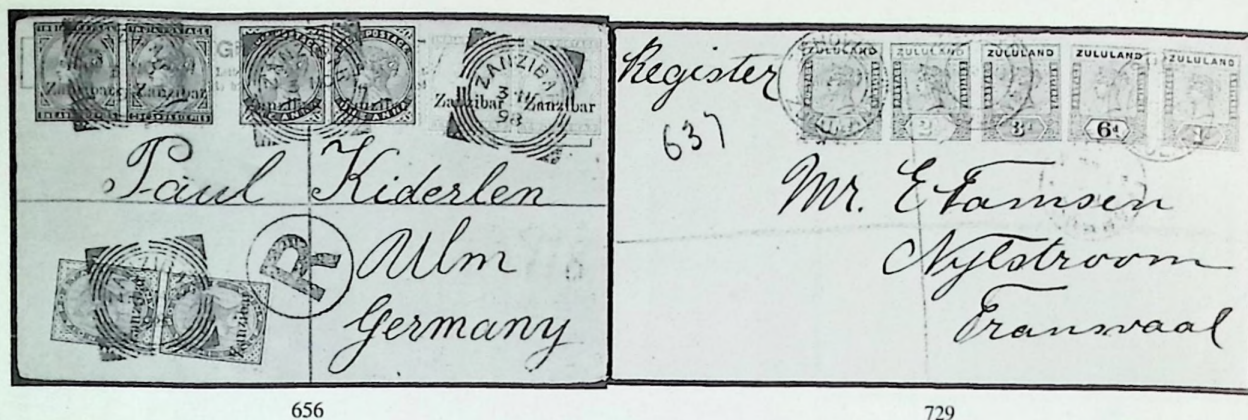 INDIA POSTAGE
Zanzibar Zanzibar
Zanzibar Zanzibar
Zanzibar Zanzibar
ZANZIBAR
98
Paul Kiderlen
R
Ulm
Germany
ZANZIBAR
Zanzibar Zanzibar
656
Register
637
ZULULAND ZULULAND ZULULAND ZULULAND ZULULAND
6d
Mr. E Tamsen
Nylstroom
Transvaal
729